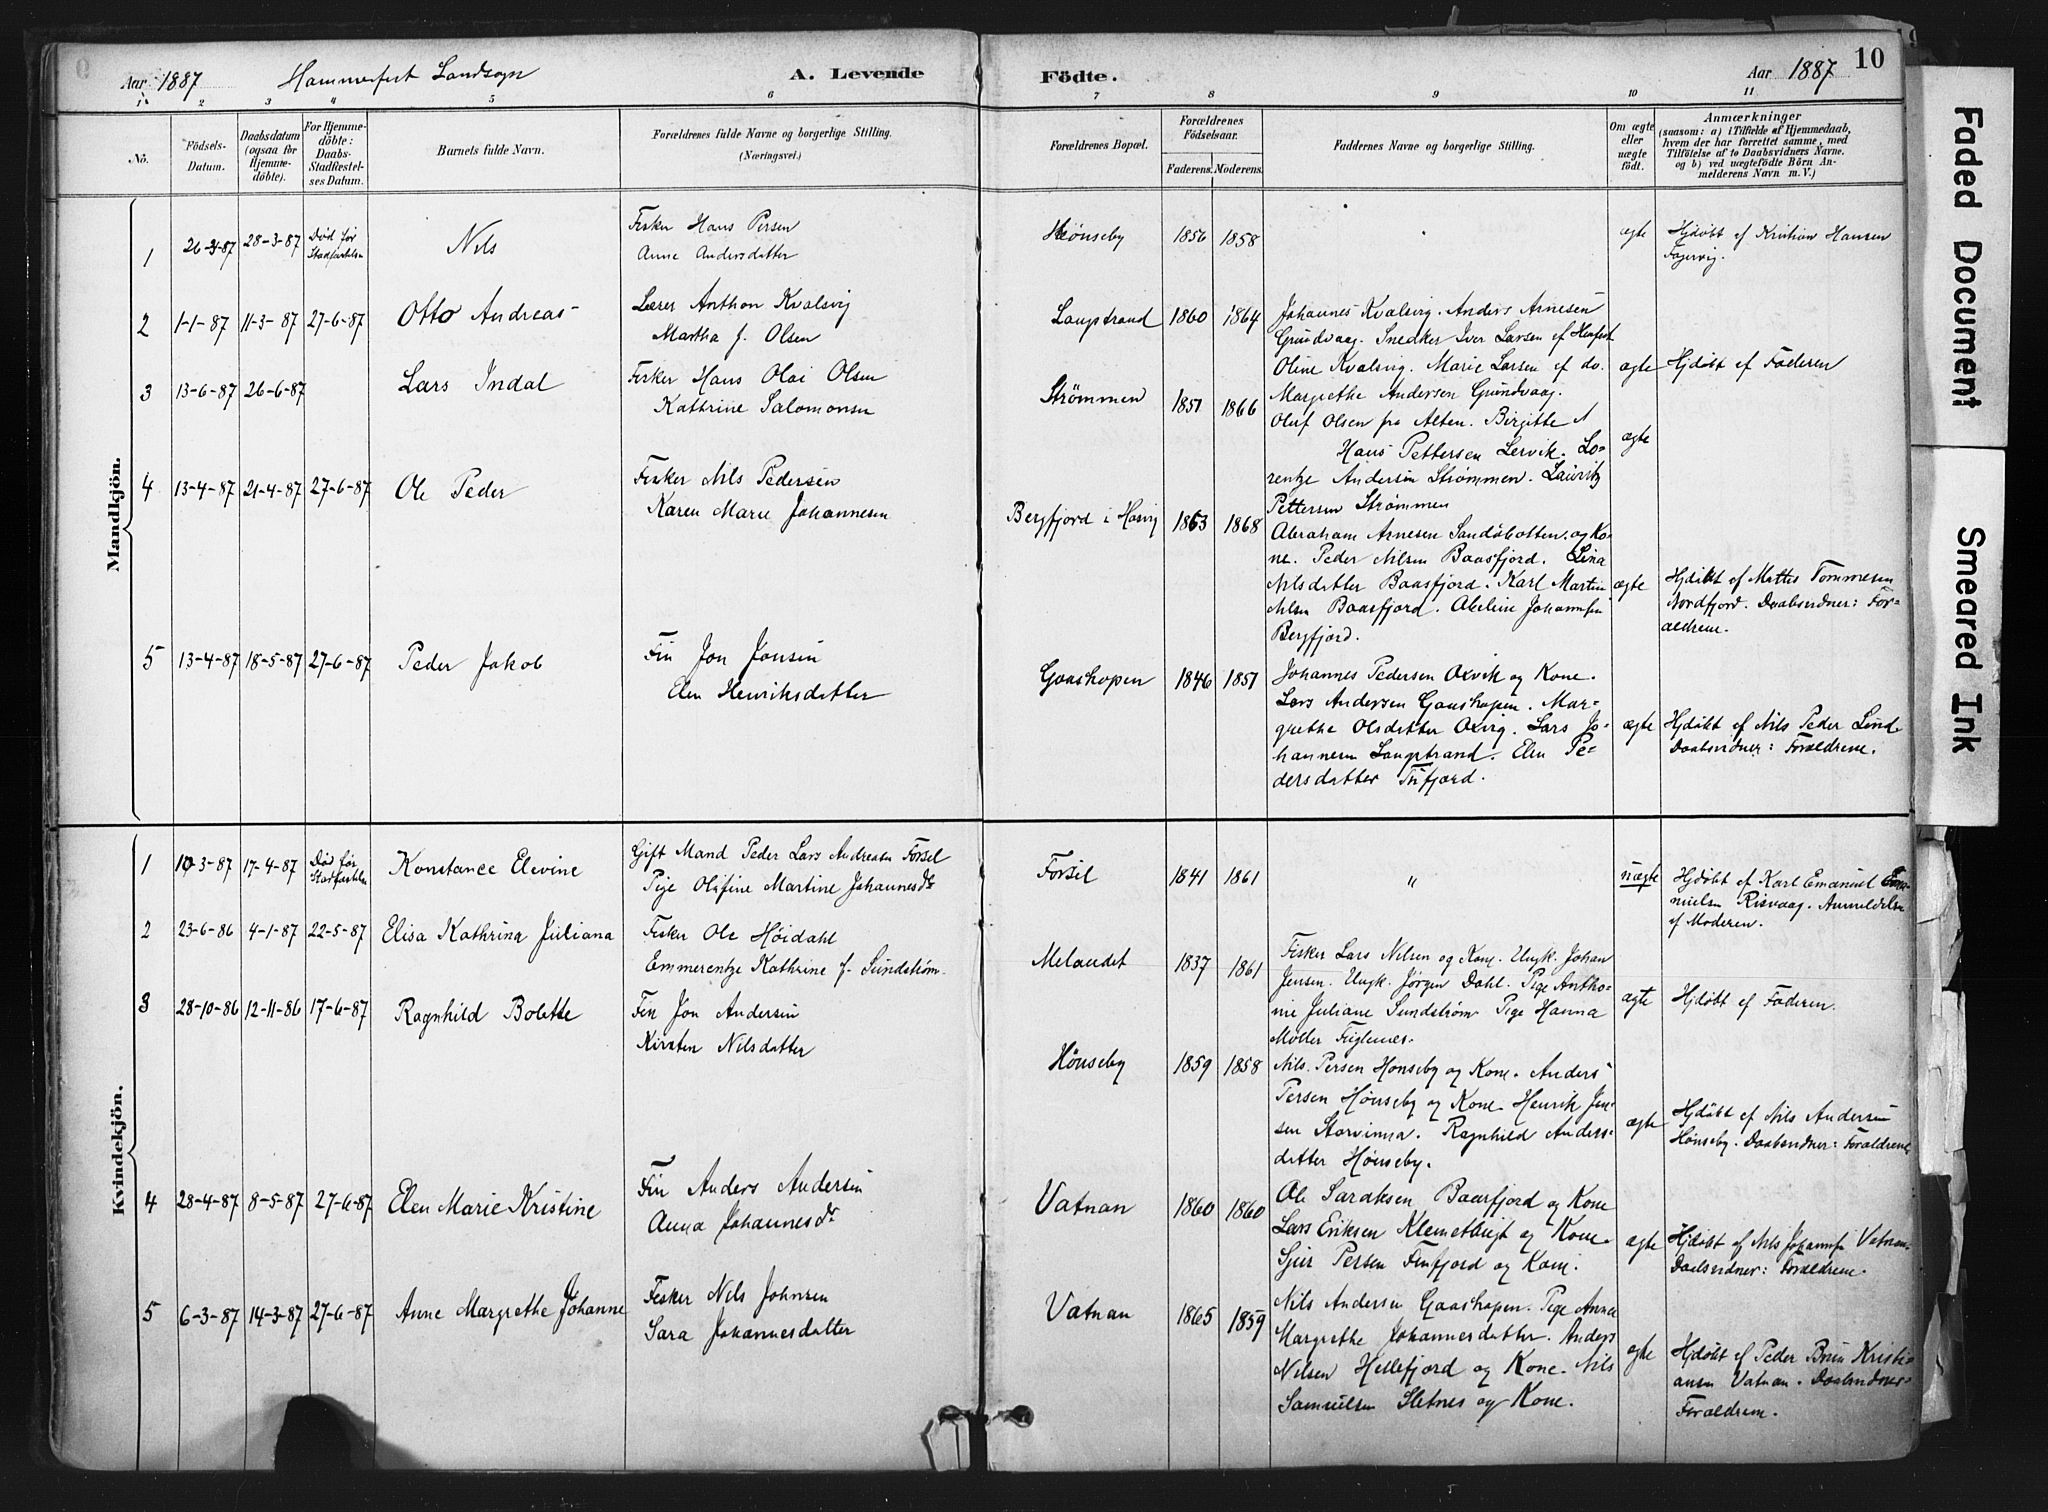 Aar 1887 Hammerfest Landsogn A. Levende Födte. Aar 1887 10
1 2 3 4 5 6 7 8 9 10 11
No.
Födsels-
Datum.
Daabsdatum
(ogsaa for
Hjemme-
döbte).
For Hjemme-
döbte:
Daabs-
Stadfæstel-
ses Datum.
Barnets fulde Navn.
Forældrenes fulde Navne og borgerlige Stilling.
(Næringsvei.)
Forældrenes Bopæl.
Forældrenes
Födselsaar.
Faderens. Moderens.
Faddernes Navne og borgerlige Stilling.
Om ægte
eller
uægte
födt.
Anmærkninger
(saasom: a) i Tilfælde af Hjemmedaab,
hvem der har forrettet samme, med
Tilföielse af to Daabsvidners Navne.
og b) ved uægtefödte Börn An-
melderens Navn m. V.)
Mandkjön.
1 26-3-87 28-3-87 Död før
Stadfæstelsen
Nils
Fisker Hans Persen
Anne Andersdatter
Hönseby 1856 1858
ægte
Hjdöbt af Kristian Hansen
Fagervig.
2 1-1-87 11-3-87 27-6-87 Otto Andreas
Lærer Anthon Kvalsvig
Martha J. Olsen
Langstrand 1860 1864
Johannes Kvalsvig. Anders Arnesen
Grundvaag. Snedker Iver Larsen af Hmfest
Oline Kvalsvig. Marie Larsen af do.
Margrethe Andersen Grundvaag.
ægte Hjdöbt af Faderen
3 13-6-87 26-6-87 Lars Indal
Fisker Hans Olai Olsen
Kathrine Salomonsen
Strømmen 1851 1866
Oluf Olsen fra Alten. Birgitte A
Hans Pettersen Lervik. Lo-
rentze Andersen Strømmen. Lauritz
Pettersen Strømmen
ægte
4 13-4-87 21-4-87 27-6-87 Ole Peder
Fisker Nils Pedersen
Karen Marie Johannesen
Bergfjord i Hasvig 1863 1868
Abraham Arnesen Sandöbotten og Ko-
ne. Peder Nilsen Baasfjord. Lina
Nilsdatter Baasfjord. Karl Martin
Nilsen Baasfjord. Abeline Johannsen
Bergfjord.
ægte
Hjdöbt af Mattis Tommesen
Nordfjord. Daabsvidner: For-
ældrene.
5 13-4-87 18-5-87 27-6-87 Peder Jakob
Fin Jon Jonsen
Elen Henriksdatter
Gaashopen 1846 1851
Johannes Pedersen Oxvik og Kone.
Lars Andersen Gaashopen. Mar-
grethe Olsdatter Oxvig. Lars Jo-
hannesen Langstrand. Elen Pe-
dersdatter Fufjord.
ægte
Hjdöbt af Nils Peder Lind
Daabsvidner: Forældrene.
Kvindekjön.
1 10-3-87 17-4-87 Död før
Stadfæstelsen
Konstance Elevine
Gift Mand Peder Lars Andreasen Forsöl
Pige Olefine Martine Johannesdtr
Forsöl 1841 1861
"
uægte
Hjdöbt af Karl Emanuel Ema-
nuelsen Risvaag. Anmeldelse
af Moderen.
2 23-6-86 4-1-87 22-5-87 Elisa Kathrina Juliana
Fisker Ole Höidahl
Emmerentze Kathrine f. Sundstrøm
Melandet 1837 1861
Fisker Lars Nilsen og Kone. Ungk. Johan
Jensen. Ungk. Jørgen Dahl. Pige Antho-
nie Juliane Sundstrøm Pige Hanna
Møller Fuglenes.
ægte Hjdöbt af Faderen.
3 28-10-86 12-11-86 17-6-87 Ragnhild Bolette
Fin Jon Andersen
Kirsten Nilsdatter
Hönseby 1859 1858
Nils Persen Hönseby og Kone. Anders
Persen Hönseby og Kone. Henrik Jen-
sen Storvinna. Ragnhild Anders-
datter Hönseby.
ægte
Hjdöbt af Nils Andersen
Hönseby. Daabsvidner: Forældrene
4 28-4-87 8-5-87 27-6-87 Elen Marie Kristine
Fin Anders Andersen
Anna Johannesdtr
Vatnan 1860 1860
Ole Saraksen Baasfjord og Kone
Lars Eriksen Klemetbugt og Kone.
Sjur Persen Finfjord og Kone.
ægte
Hjdöbt af Nils Johannsen Vatnan.
Daabsvidner: Forældrene.
5 6-3-87 14-3-87 27-6-87 Anne Margrethe Johanne
Fisker Nils Johnsen
Sara Johannesdatter
Vatnan 1865 1859
Nils Andersen Gaashopen. Pige Anne
Margrethe Johannesdatter. Anders
Nilsen Hellefjord og Kone. Nils
Samuelsen Sletnes og Kone.
ægte
Hjdöbt af Peder Brun Kristi-
ansen Vatnan. Daabsvidner:
Forældrene.
Faded Document
Smeared Ink